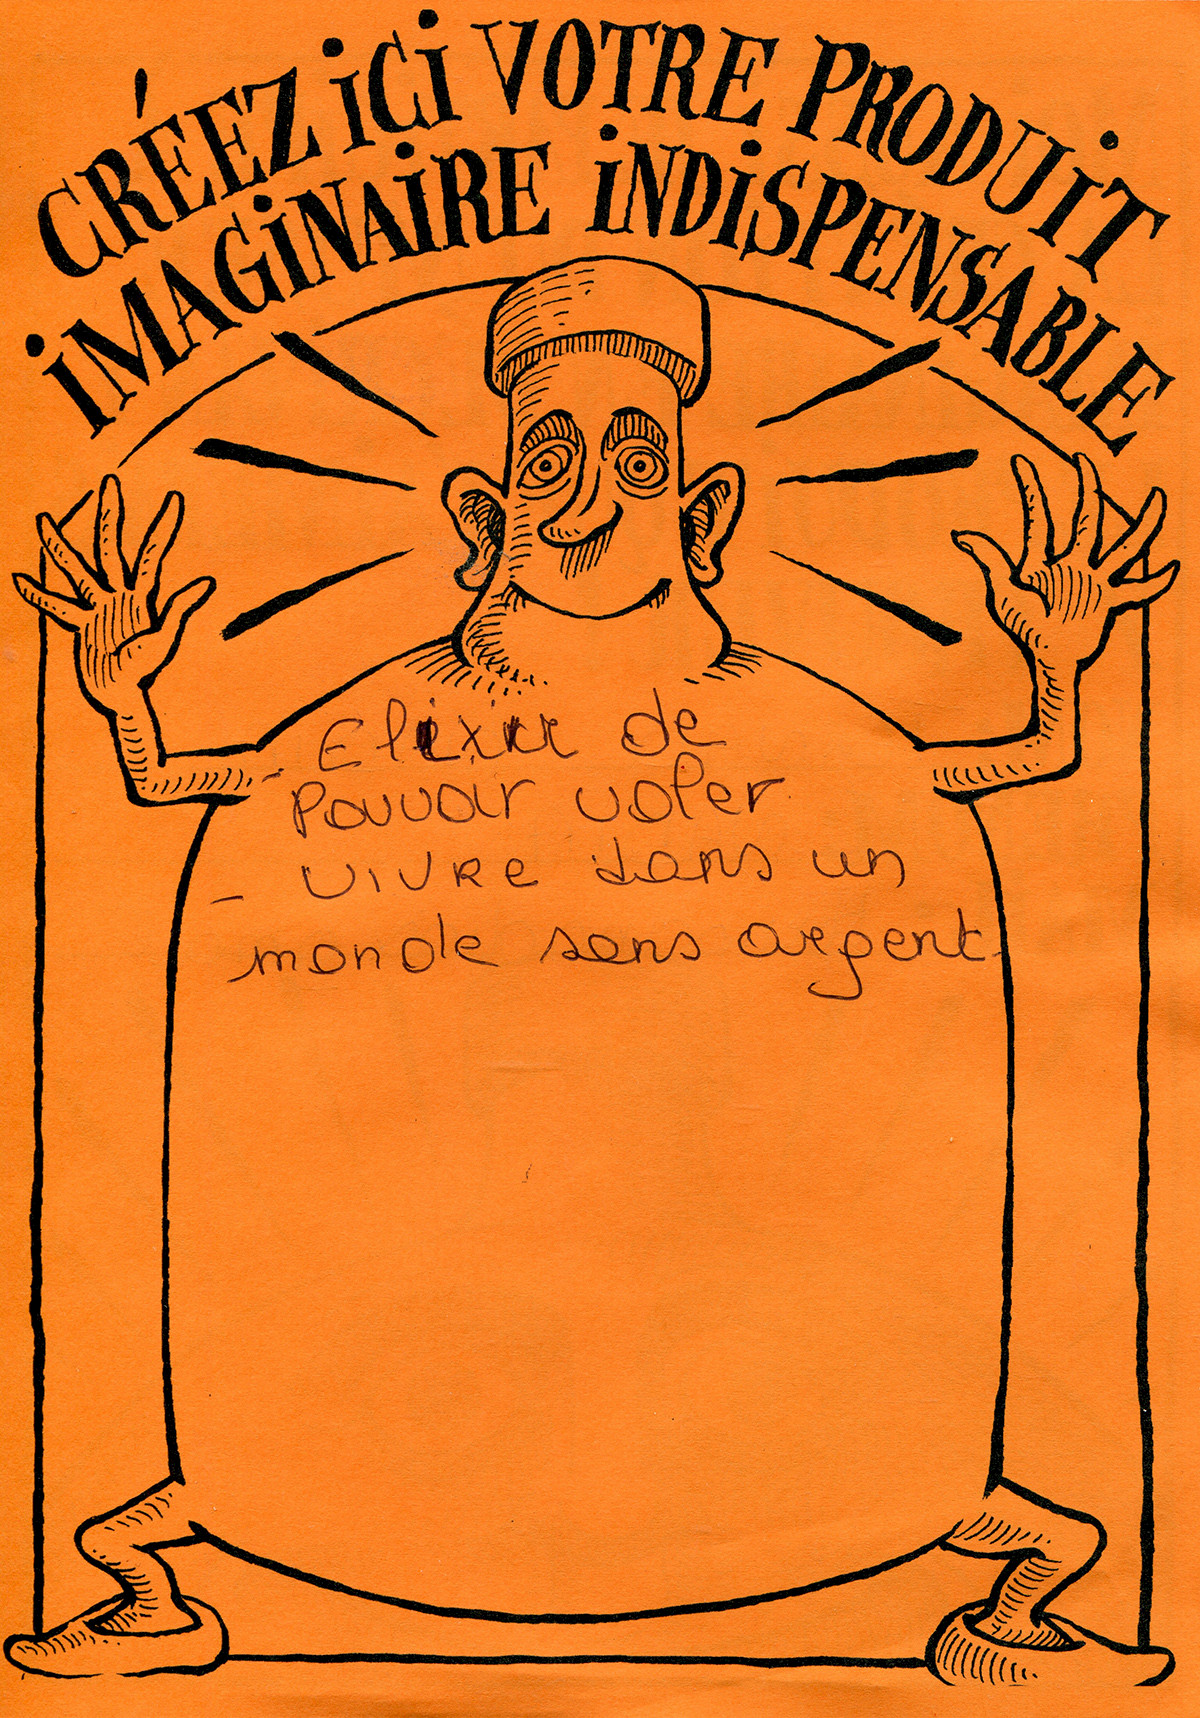 CRÉEZ ICI VOTRE PRODUIT
IMAGINAIRE INDISPENSABLE
- Elixir de
Pouvoir voler
- VIVRE dans un
monde sans argent.